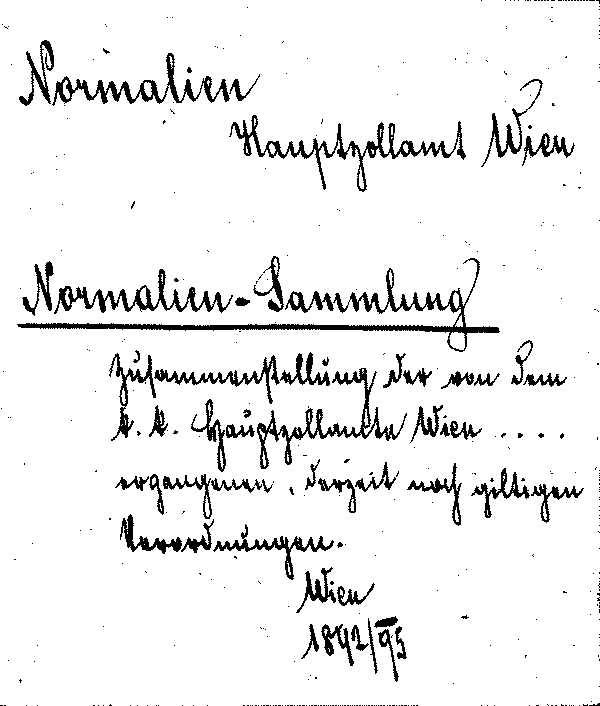 Normalien
Hauptzollamt Wien
Normalien-Sammlung
Zusammenstellung der von dem
k. k. Hauptzollamte Wien ....
ergangenen, derzeit noch giltigen
Verordnungen.
Wien
1892/95